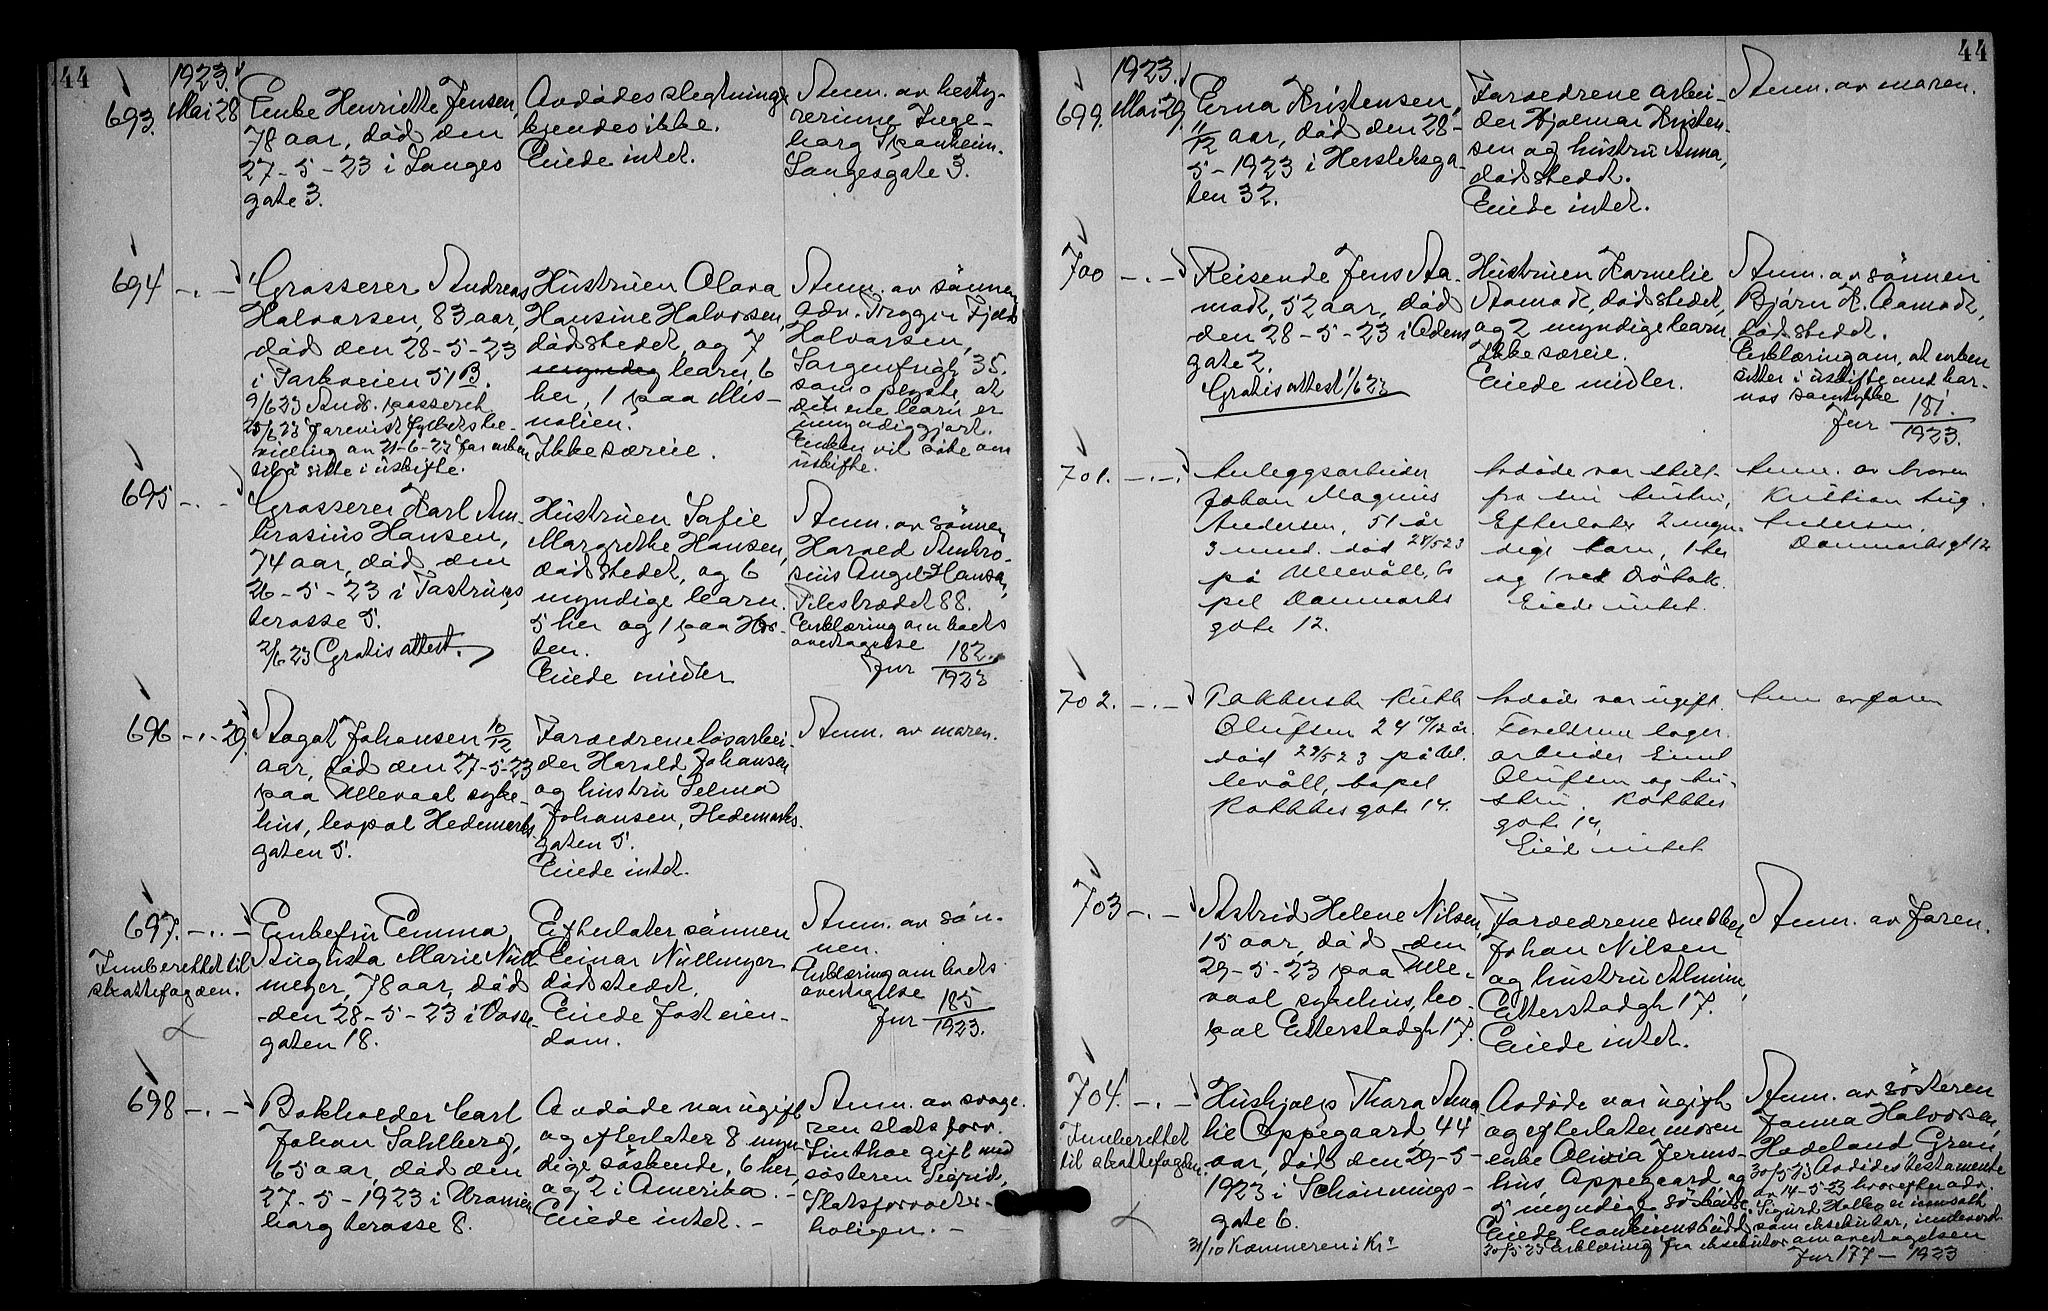 44
1923.
693.
Mai 28
Enke Henriette Jensen,
78 aar, död den
27-5-23 i Langes
gate 3.
Avdödes slegtninge
kjendes ikke.
Eiede intet.
Anm. av besty-
rerinne Inge-
borg Spanheim.
Langesgate 3.
694 -.-
Grosserer Andreas
Halvorsen, 83 aar,
död den 28-5-23
i Parkveien 51 B.
9/6 23 Andr. passeret
til å sitte i uskifte.
Hustruen Olava
Hansine Halvorsen,
dödsstedet, og 7
myndig barn 6
her, 1 paa Mis-
nolien.
Ikke særeie.
Anm. av sönnen
Adv. Trygve Fjeld
Halvorsen,
Sorgenfrigt. 35.
som oplyste, at
det ene barn er
umyndiggjort.
Enken vil söke om
uskifte.
695 -.-
Grosserer Karl Am-
brosius Hansen,
74 aar, död den
26-5-23 i Tastrups
terasse 5.
2/6 23 Gratis attest.
Hustruen Sofie
Margrethe Hansen,
dödsstedet, og 6
myndige barn.
5 her og 1 paa Hor-
ten.
Eiede midler
Anm. av sönnen
Harald Ambro-
sius Angel-Hansen,
Pilestrædet 88.
Erklæring om boets
overtagelse
Jnr 182/1923
696 -.- 29.
Aagot Johansen 10/12
aar, död den 27-5-23
paa Ullevaal syke-
hus, bopæl Hedemarks-
gaten 5.
Forældrene løsarbei-
der Harald Johansen
og hustru Selma
Johansen, Hedemarks-
gaten 5.
Eiede intet.
Anm. av moren.
697. -.-
Innberettet til
skattefogden.
Enkefru Emma
Augusta Marie Null-
meyer, 78 aar, död
den 28-5-23 i Osca-
gaten 18.
Efterlater sönnen
Einar Nullmeyer
dödsstedet.
Eiede fast eien-
dom.
Anm. av sön-
nen.
Erklæring om boets
overtagelse
Jnr 185/1923.
698 -.-
Bokholder Carl
Johan Sahlberg,
65 aar, död den
27-5-1923 i Uranien
borg terasse 8.
Avdöde var ugift
og efterlater 8 myn
dige söskende, 6 her,
og 2 i Amerika.-
Eiede intet.-
Anm. av svoge-
ren slots forv.
Linthoe gift med
søsteren Sigrid,
Slotsforvalter-
boligen.-
44
1923.
699.
Mai 29.
Erna Kristensen,
11/12 aar, död den 28-
5-1923 i Herslebsga-
ten 32.
Forældrene arbei-
der Hjalmar Kristen-
sen og hustru Anna,
dödsstedet.
Eiede intet.
Anm. av moren.
700 -.-
Reisende Jens Aa-
modt, 52 aar, död
den 28-5-23 i Odens
gate 2.
Gratis attest 1/6 23
Hustruen Kornelie
Aamodt, dödsstedet,
og 2 myndige barn.
Ikke særeie.
Eiede midler.
Anm. av sönnen
Björn K. Aamodt,
dödsstedet.
Erklæring om, at enken
sitter i uskifte med bar-
nas samtykke
Jnr 181/1923.
701. -.-
Anleggsarbeider
Johan Magnus
Andersen, 51 år
3 mnd. död 28/5 23
på Ullevåll, bo
pel Danmarks
gate 12.
Avdöde var skilt
fra sin hustru,
Efterlater 2 myn-
dige barn, 1 her
og 1 ved Dröbak.
Eiede intet.
Anm. av broren
Kristian Aug.
Andersen.
Danmarks gt 12
702. -.-
Pakkerske Ruth
Olufsen 24 10/12 år.
död 28/5 23 på Ul-
levåll, bopel
Rathkes gate 14.
Avdöde var ugift.
Foreldrene lager-
arbeider Emil
Olufsen og hu-
stru. Rathkes
gate 14,
Eied intet
Anm av faren
703 -.-
Astrid Helene Nilsen,
15 aar, död den
29-5-23 paa Ulle-
vaal sykehus, bo
pæl Etterstadgt 17.
Forældrene snekker
Johan Nilsen
og hustru Almine,
Etterstadgt 17.
Eiede intet.
Anm. av faren.
704. -.-
Innberettet
til skattefogden
Hushjælp Thora Ama
lie Oppegaard, 44
aar, död den 29-5-
1923 i Schönnings-
gate 6.
31/10 Kæmneren i Kra
Avdöde var ugift
og efterlater moren
enke Olivia Jerms-
hus Oppegaard og
5 myndige söskende.
Anm. av sösteren
Janna Halvorsen,
Hadeland Gran
30/5 23 Avdödes testamente
av 14-5-23 hvorefter adv.
Sigurd Holbø er innsatt
som eksekutor, innlevert.
30/5-23 Erklæring fra eksekutor om overtagelsen
Jnr 177-1923